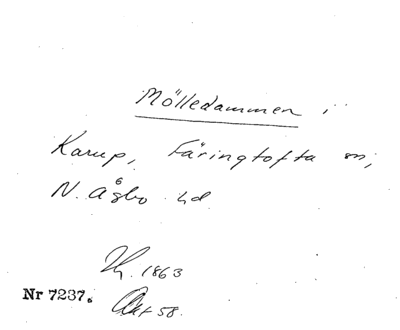 Mölledammen i
Karup, Färingtofta sn,
N. Åsbo hd.
1863
Nr 7237. Akt 58.